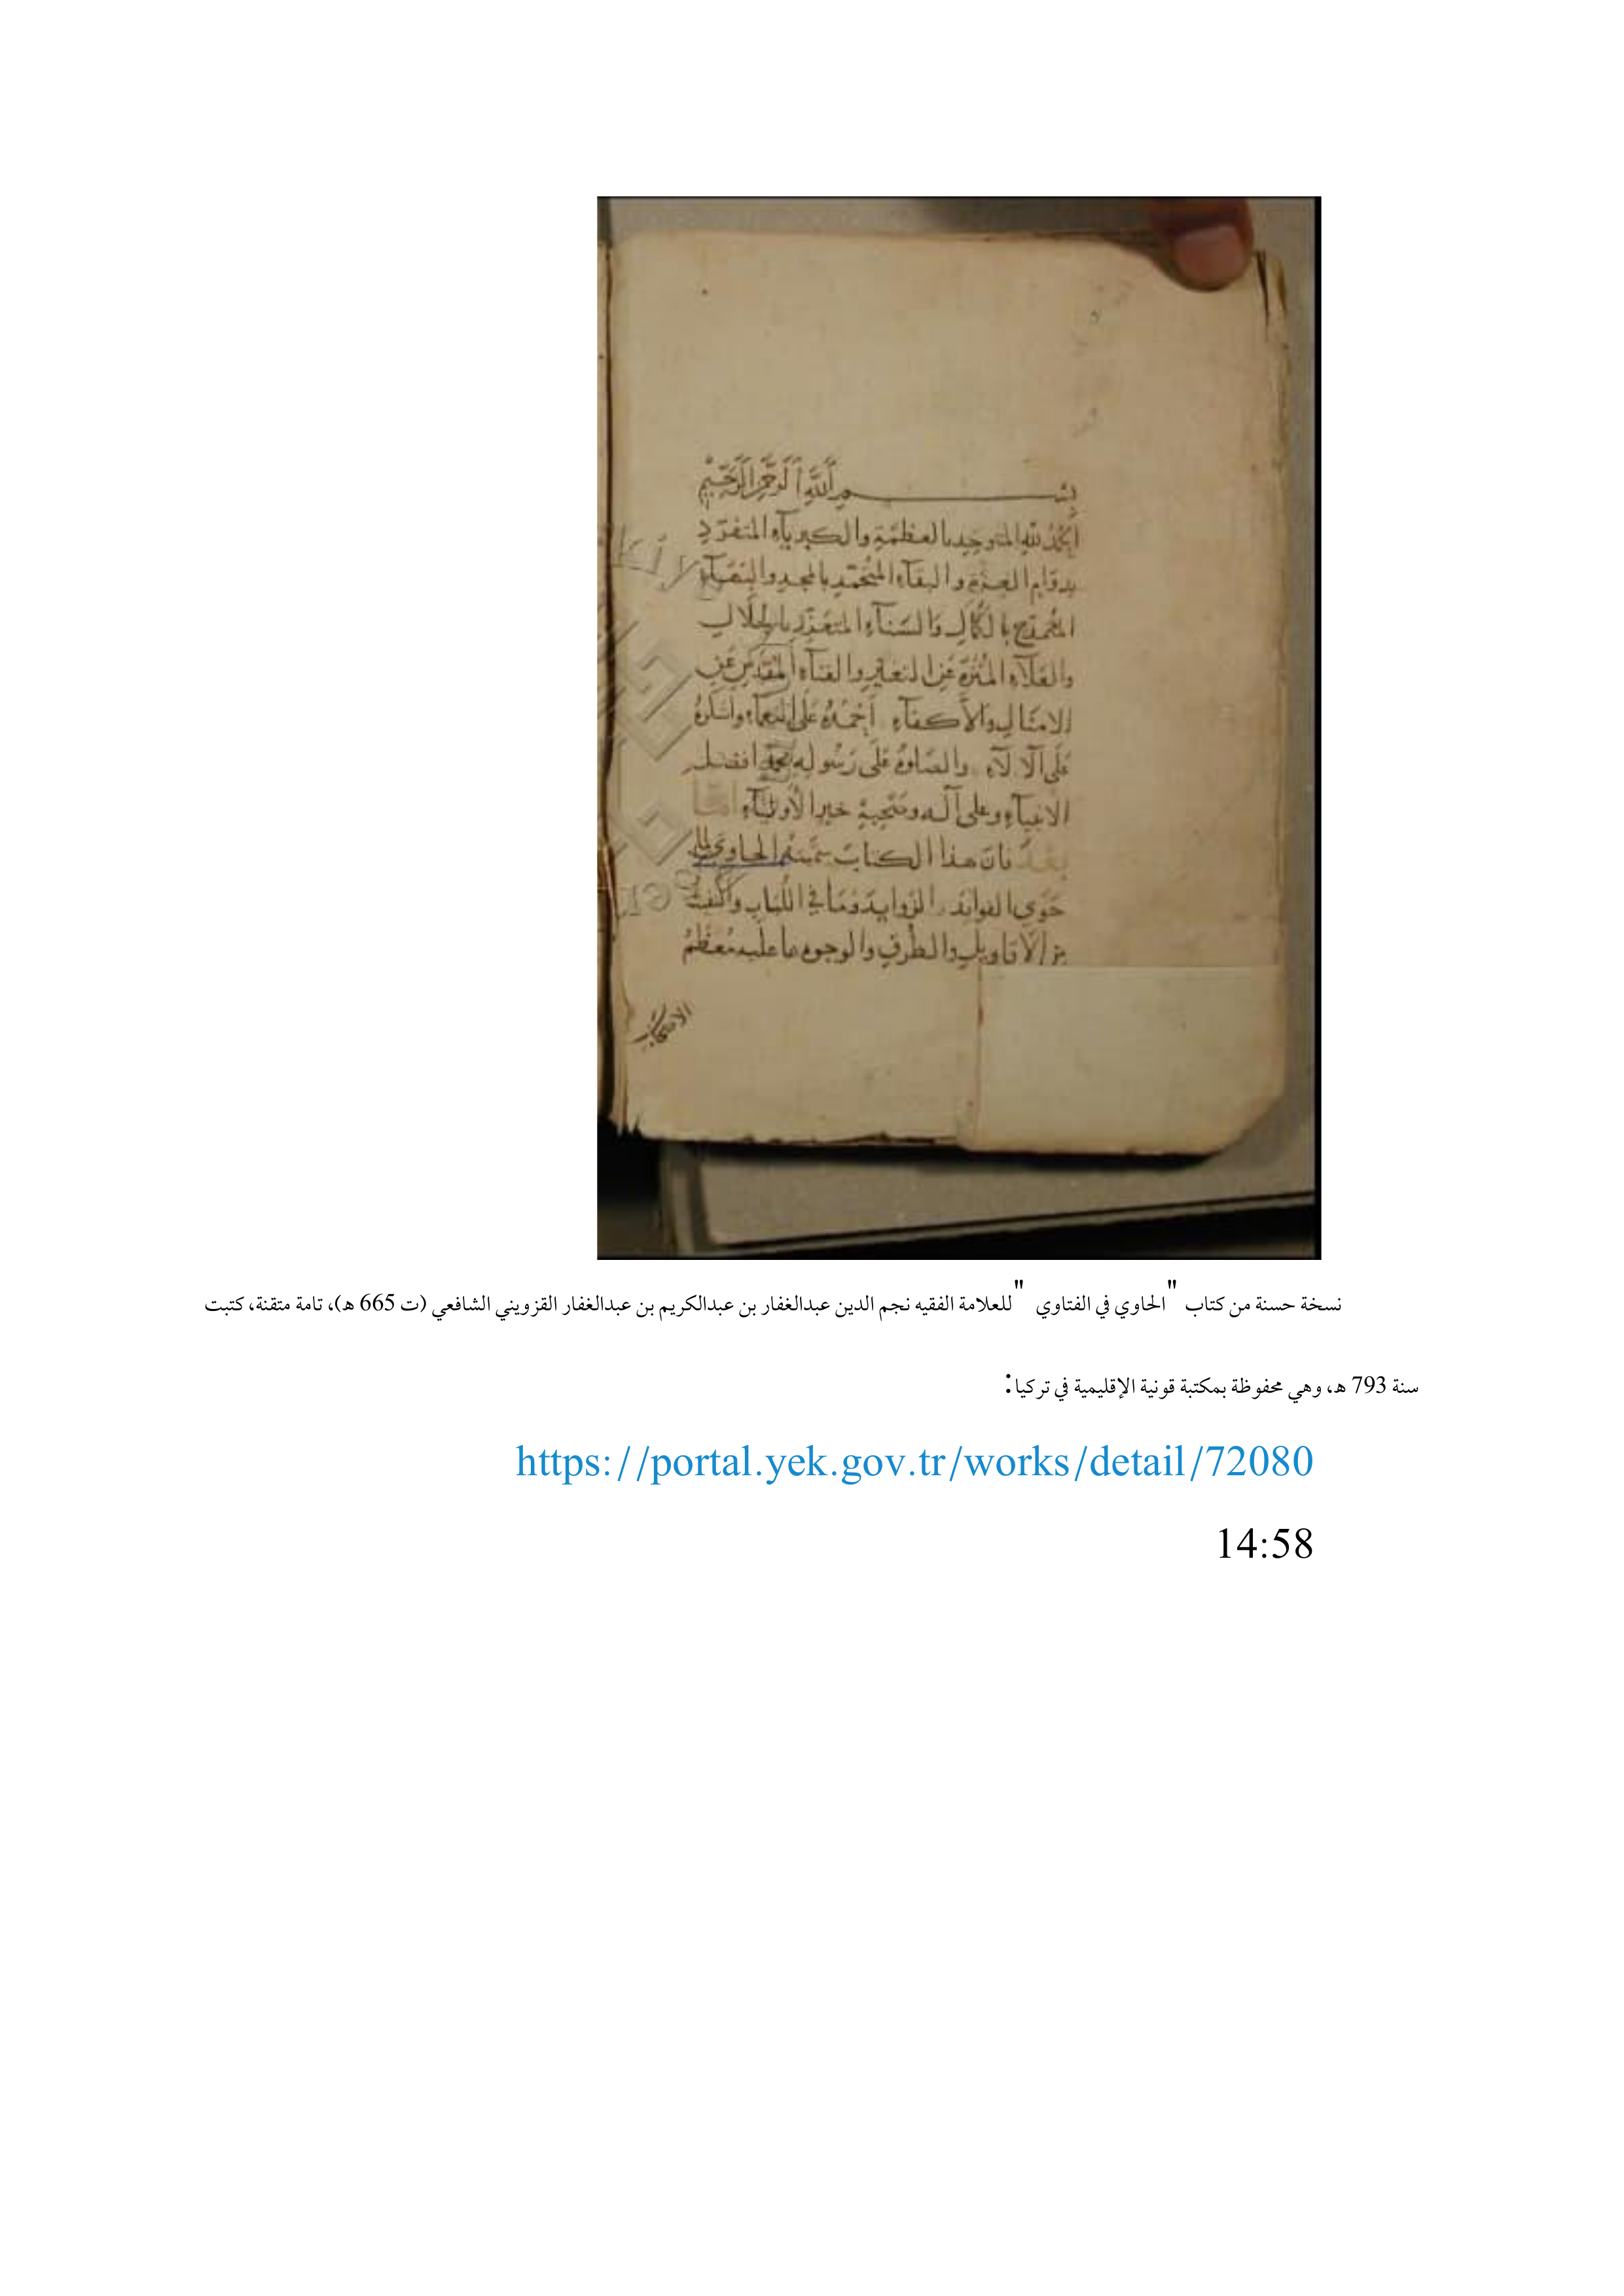 بسم الله الرحمن الرحيم
الحمد لله المتوحد بالعظمة والكبرياء المتفرد
بدوام العز والبقاء المتحمد بالمجد
المتمدح بالكمال والسناء المتعزز بالجلال
والعلاء المنزه عن التغير والفناء المقدس عن
الامثال والأكفاء أحمده على النعماء واشكره
على الآلاء والصلوة على رسوله محمد افضل
الانبياء وعلى آله وصحبه خير الأولياء امّا
بعد فان هذا الكتاب سميته الحاوي لما
حوى الفوائد الزوايد وما في اللباب
من الاقاويل والطرق والوجوه ما عليه معظم
نسخة حسنة من كتاب "الحاوي في الفتاوي" للعلامة الفقيه نجم الدين عبدالغفار بن عبدالكريم بن عبدالغفار القزويني الشافعي (ت 665 هـ)، تامة متقنة، كتبت
سنة 793 هـ، وهي محفوظة بمكتبة قونية الإقليمية في تركيا:
https://portal.yek.gov.tr/works/detail/72080
14:58